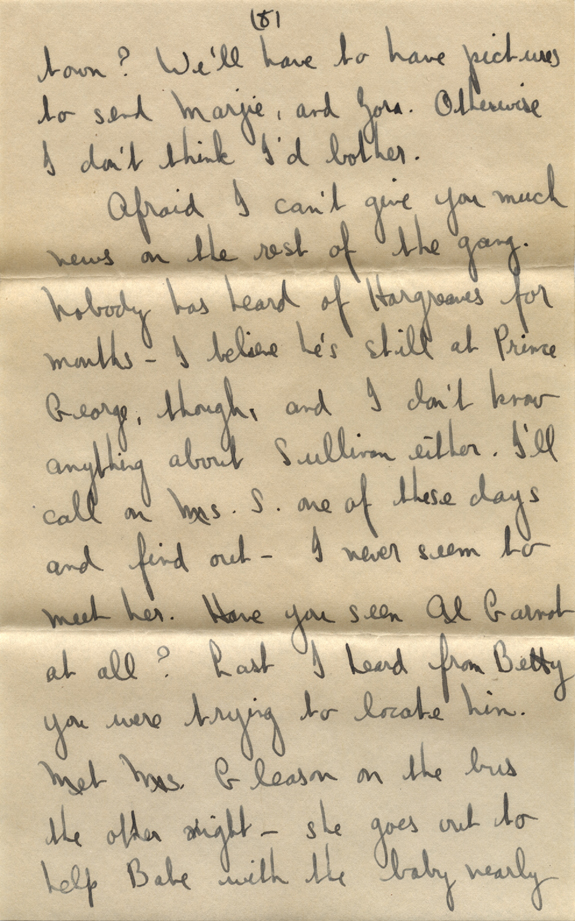 (8)
town? We'll have to have pictures
to send Marjie, and Zora. Otherwise
I don't think I'd bother.
Afraid I can't give you much
news on the rest of the gang.
Nobody has heard of Hargreaves for
months - I believe he's still at Prince
George, though, and I don't know
anything about Sullivan either. I'll
call on Mrs. S. one of these days
and find out - I never seem to
meet her. Have you seen Al Garnot
at all? Last I heard from Betty
you were trying to locate him.
Met Mrs. Gleason on the bus
the other night - she goes out to
help Babe with the baby nearly